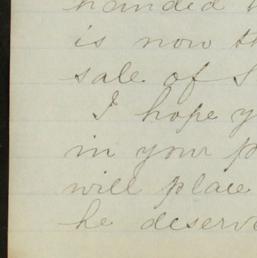 handed
is now th
sale of S
I hope y
in your p
will place
he deserv